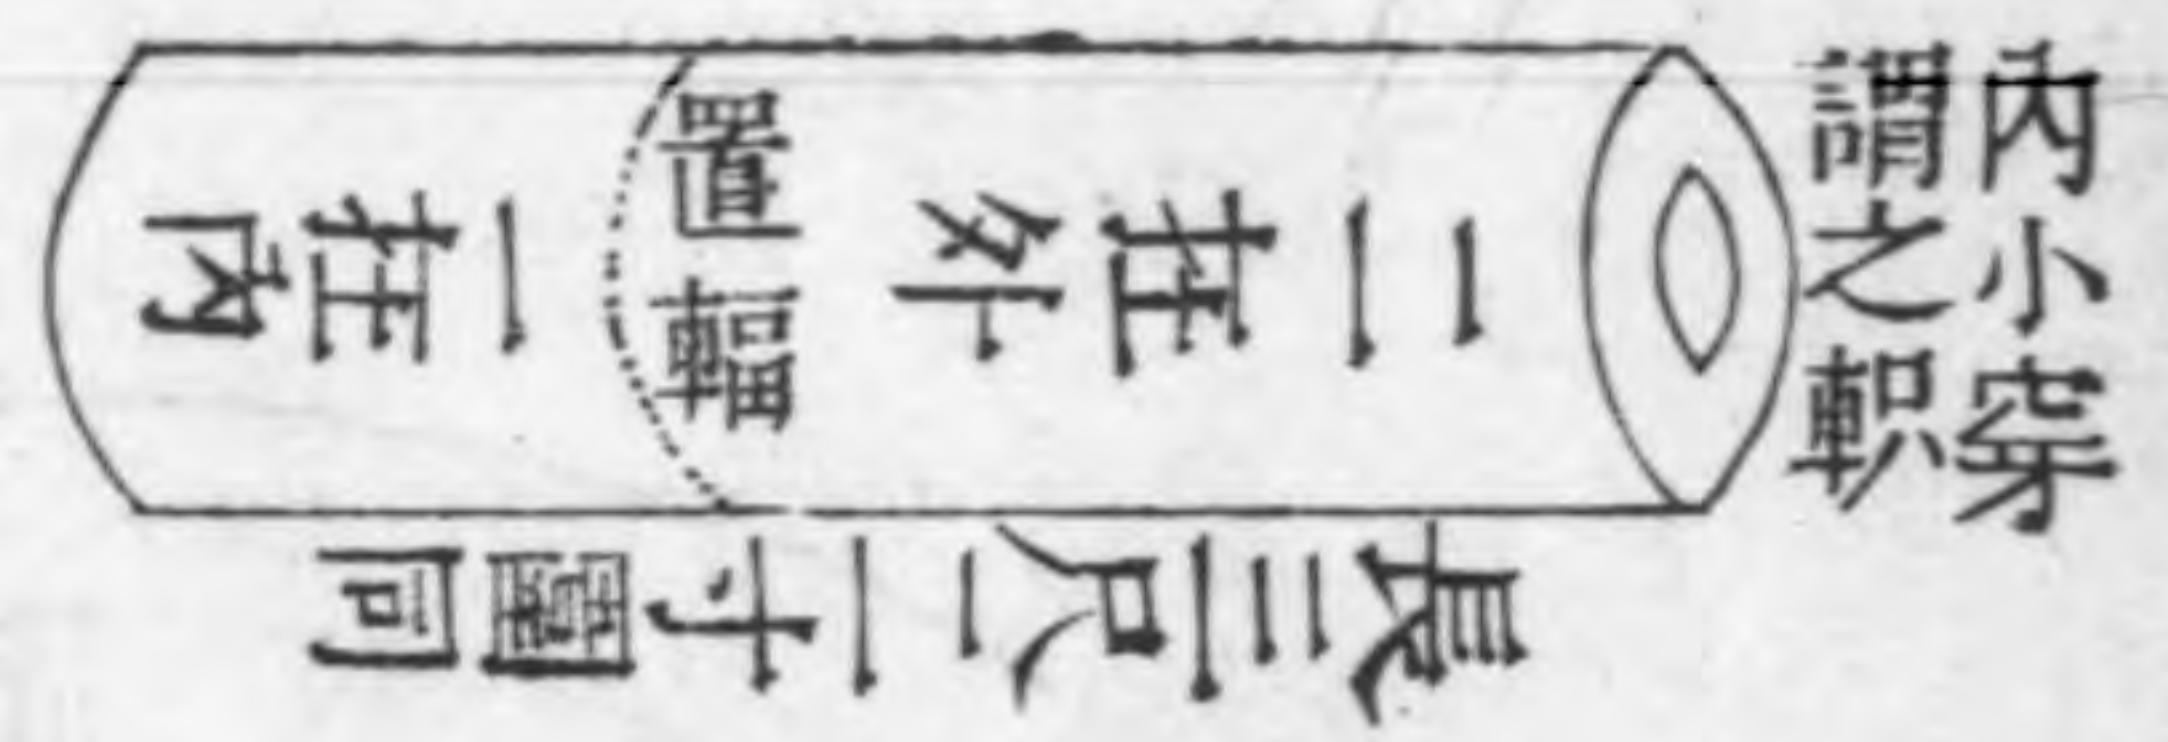 內小穿
謂之軹
二在外
置輻
一在內
長三尺二寸圍同